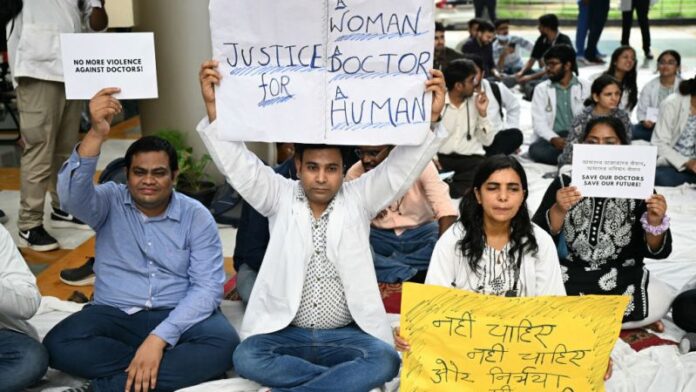 NO MORE VIOLENCE
AGAINST DOCTORS!
JUSTICE
for
A
WOMAN
A
DOCTOR
A
HUMAN
SAVE OUR DOCTORS
SAVE OUR FUTURE!
नही चाहिए
नही चाहिए
और निर्भया